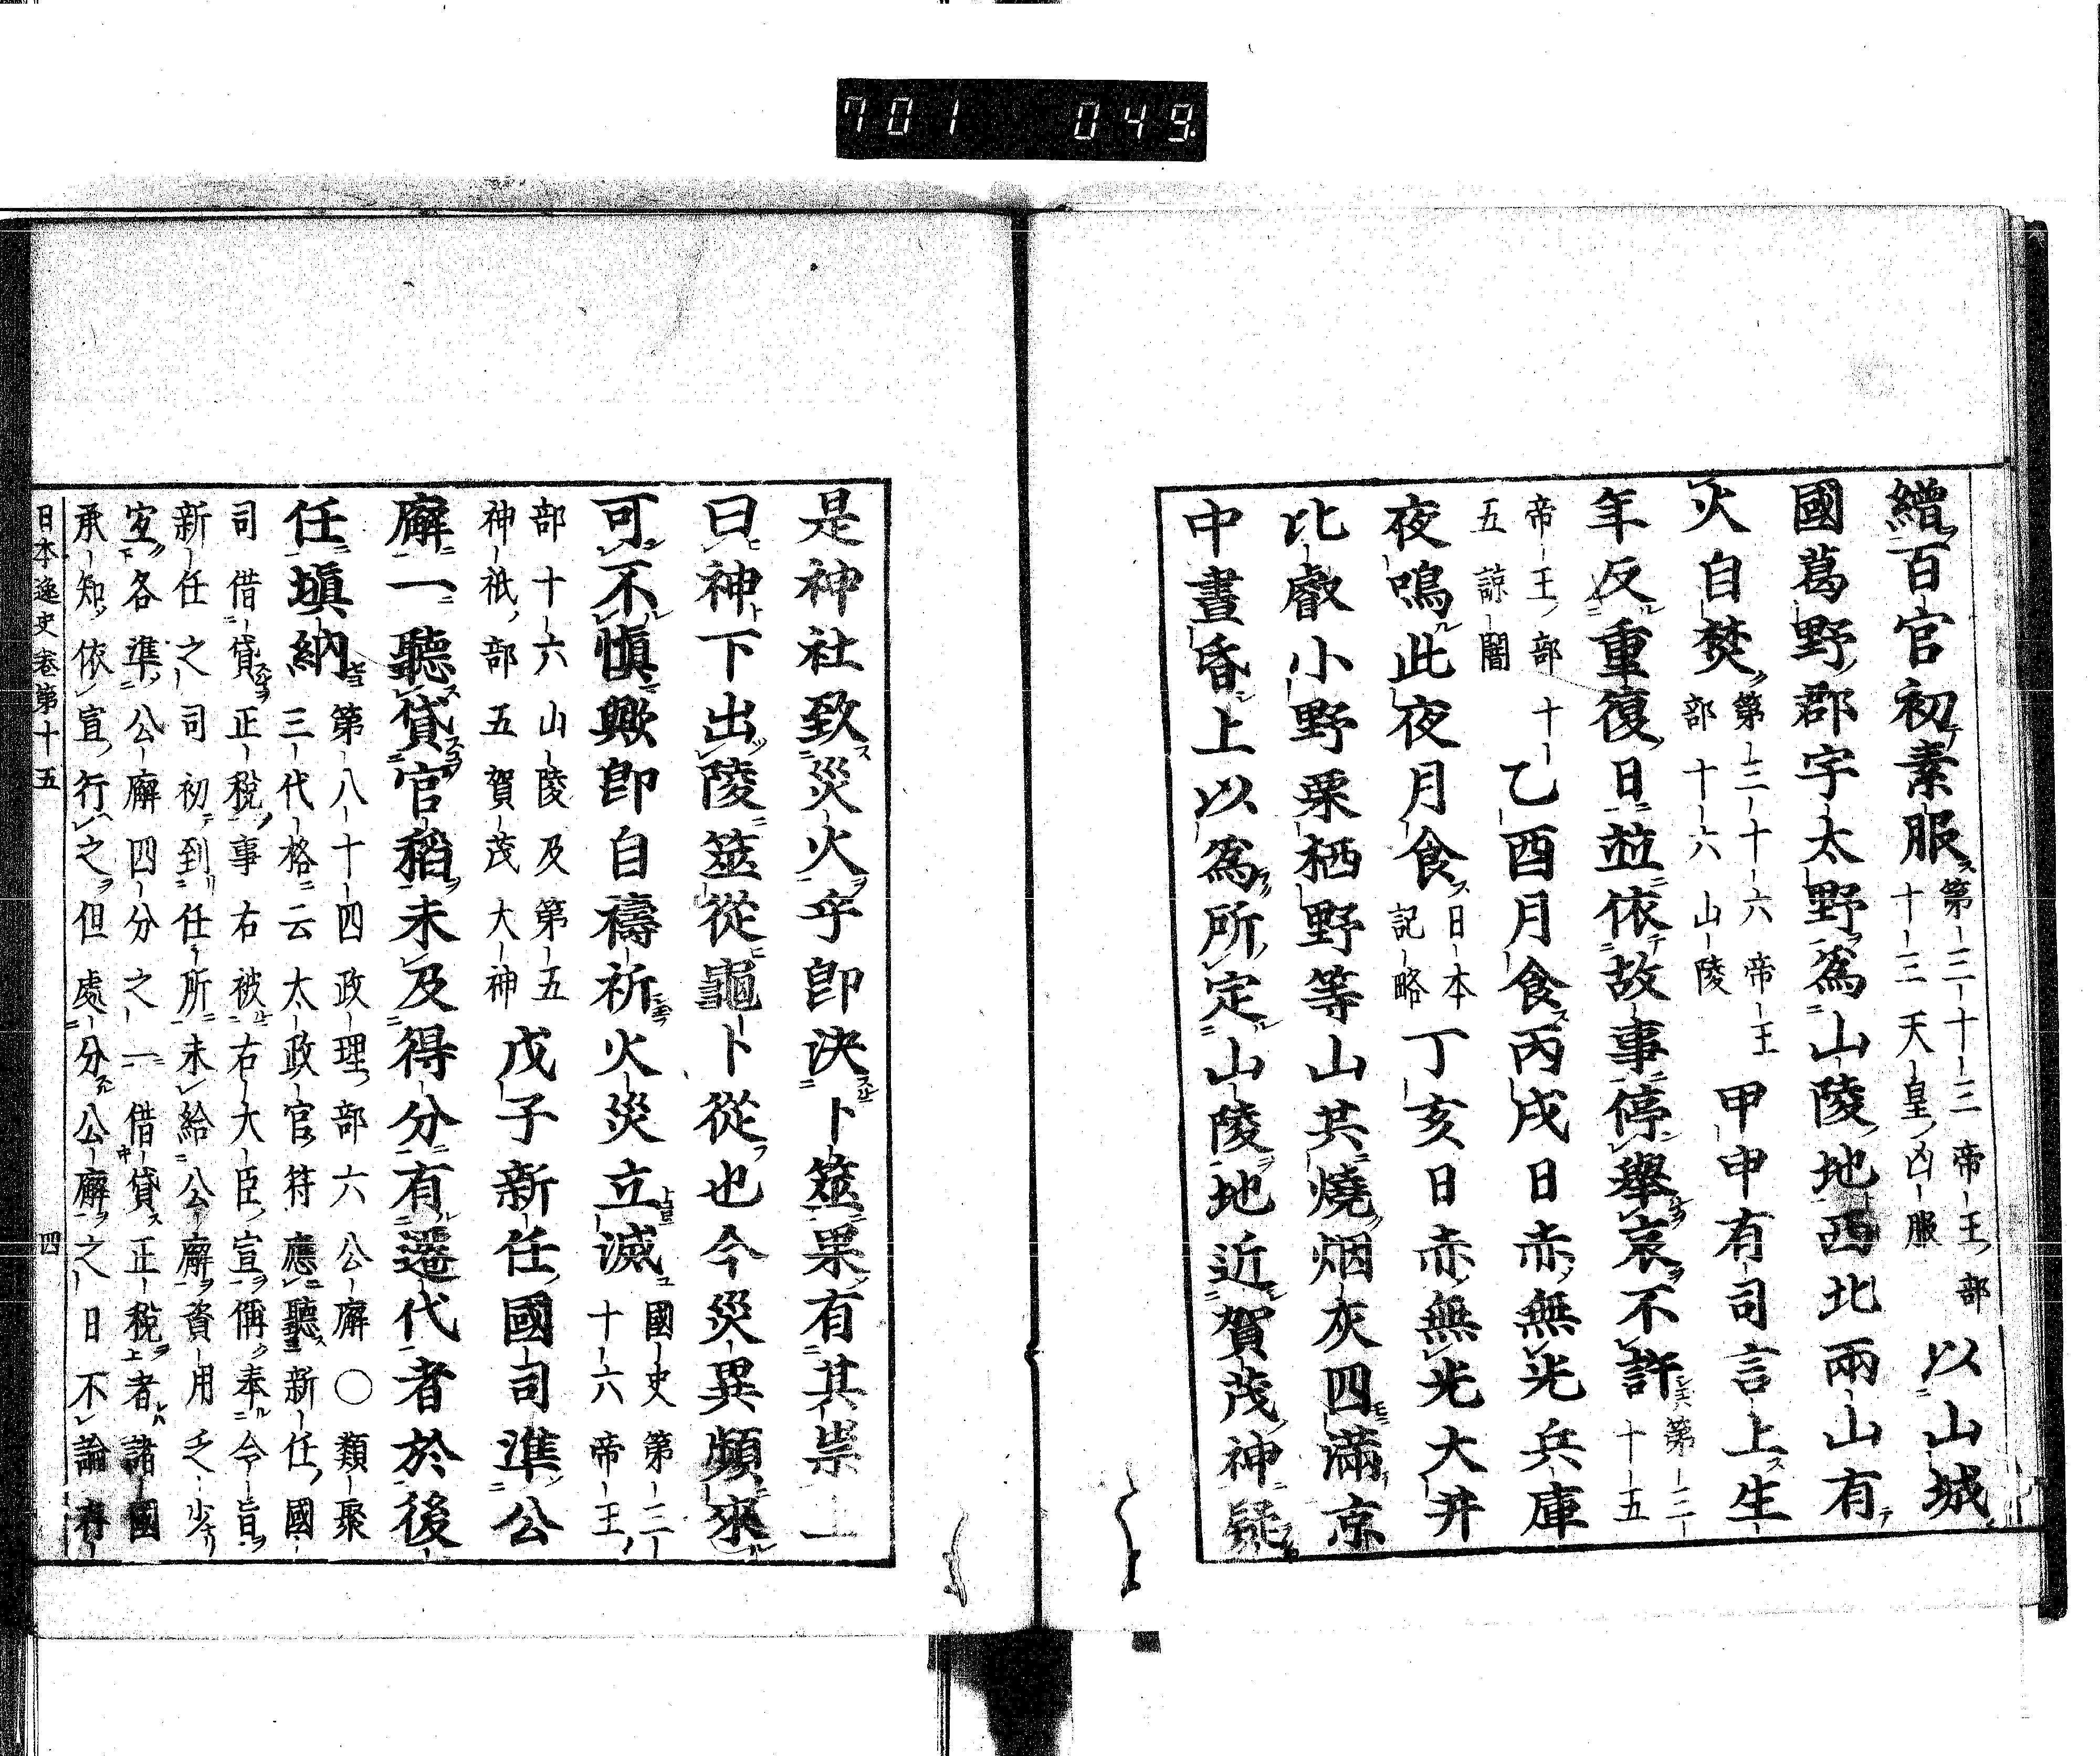 701 049
繒百官初素服第三十三帝王部十三天皇凶服以山城
國葛野郡宇太野爲山陵地西北兩山有
火自焚第三十六帝王部十六山陵甲申有司言上生
年反重復日並依故事停擧哀不許第三十五
帝王部十五諒闇乙酉月食丙戌日赤無光兵庫
夜鳴此夜月食日本記略丁亥日赤無光大井
比叡小野栗栖野等山共燒烟灰四滿京
中晝昏上以爲所定山陵地近賀茂神疑
是神社致災火乎卽決卜筮果有其祟上
曰神下出陵筮從龜卜從也今災異頻來
可不愼歟卽自禱祈火災立滅國史第三十六帝王
部十六山陵及第五神祇部五賀茂大神戊子新任國司準公
廨一聽貸官稻未及得分有遷代者於後
任塡納第八十四政理部六公廨〇類聚三代格云太政官符應聽新任國
司借貸正稅事右被右大臣宣偁奉令旨
新任之司初到任所未給公廨資用乏少
宜各準公廨四分之一借貸正稅者諸國
承知依宣行之但處分公廨之日不論
日本逸史卷第十五 四